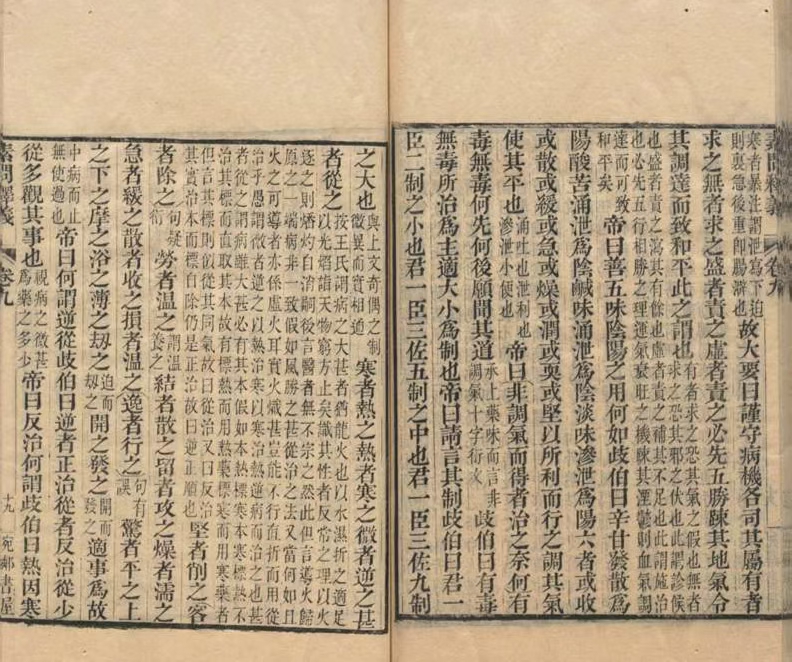 素問釋義 卷九
寒者暴注謂泄寫下迫
則裏急後重卽腸澼也
故大要曰謹守病機各司其屬有者
求之無者求之盛者責之虛者責之必先五勝踈其地氣令
其調達而致和平此之謂也
有者求之恐其氣之假也無者
求之恐其邪之伏也此謂診候
也盛者責之瀉其有餘也虛者責之補其不足也此謂施治
也必先五行相勝之理運氣衰旺之機踈其湮鬱則血氣調
達而可致
和平矣
帝曰善五味陰陽之用何如歧伯曰辛甘發散爲
陽酸苦涌泄爲陰鹹味涌泄爲陰淡味滲泄爲陽六者或收
或散或緩或急或燥或潤或耎或堅以所利而行之調其氣
使其平也
涌吐也泄利也
滲泄小便也
帝曰非調氣而得者治之奈何有
毒無毒何先何後願聞其道
承上藥味而言非
調氣十字衍文
歧伯曰有毒
無毒所治爲主適大小爲制也帝曰請言其制歧伯曰君一
臣二制之小也君一臣三佐五制之中也君一臣三佐九制
之大也
與上文奇偶之制
微異而實相通
寒者熱之熱者寒之微者逆之甚
者從之
按王氏謂病之大甚者猶龍火也以水濕折之適足
以光熖詣天物窮方止矣識其性者反常之理以火
逐之則燔灼自消嗣後言醫者無不宗之然此但言導火歸
原之一端病非一致假如風勝之甚從治之法又當何如且
火之可導者亦係虛火耳實火熾甚豈能不行直折而用從
治乎愚謂微者逆之以熱治寒以寒治熱逆病而治之也甚
者從之謂病雖大甚必有其本假如本熱標寒本寒標熱不
治其標而直取其本故有標熱而用熱藥標寒而用寒藥者
但言其標則似從其同氣故曰從治又曰反治
其實治本而標自除仍是正治故曰逆正順也
堅者削之客
者除之
句疑
衍
勞者溫之
謂溫
養之
結者散之留者攻之燥者濡之
急者緩之散者收之損者溫之逸者行之
句有
誤
驚者平之上
之下之摩之浴之薄之刼之
迫而
刼之
開之發之
開而
發之
適事爲故
中病而止
無使過也
帝曰何謂逆從歧伯曰逆者正治從者反治從少
從多觀其事也
視病之微甚
爲藥之多少
帝曰反治何謂歧伯曰熱因寒
素問釋義 卷九 十九 宛鄰書屋